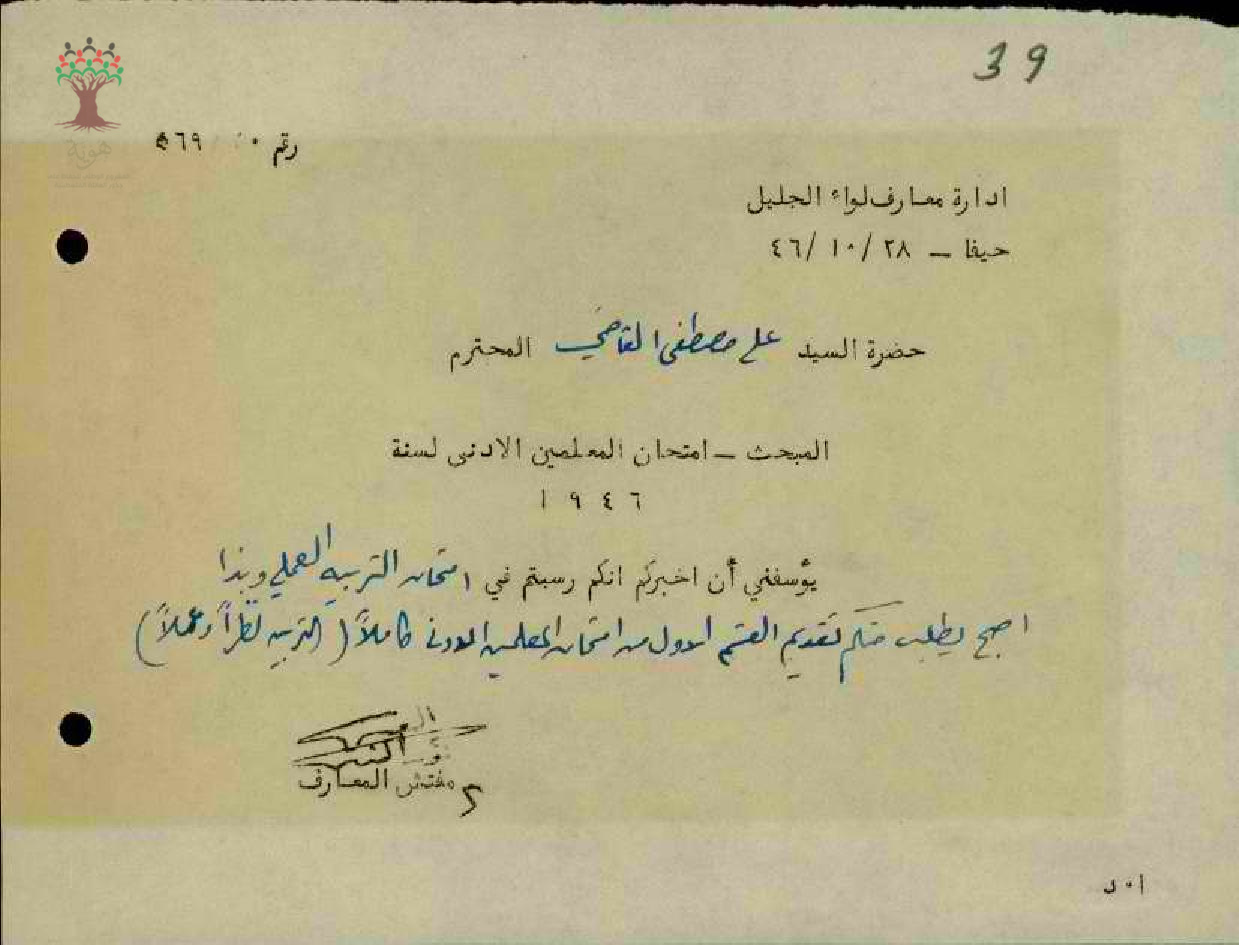 39
رقم ٥٦٩
هوية
ادارة معارف لواء الجليل
حيفا – ٢٨/ ١٠/ ٤٦
حضرة السيد علي مصطفى القاضي المحترم
المبحث – امتحان المعلمين الادنى لسنة
١٩٤٦
يؤسفني أن اخبركم انكم رسبتم في امتحان التربيه العملي وبذا
اصبح يطلب منكم تقديم القسم الاول من امتحان المعلمين الادنى كاملاً ( التربيه نظراً وعملاً )
مفتش المعارف